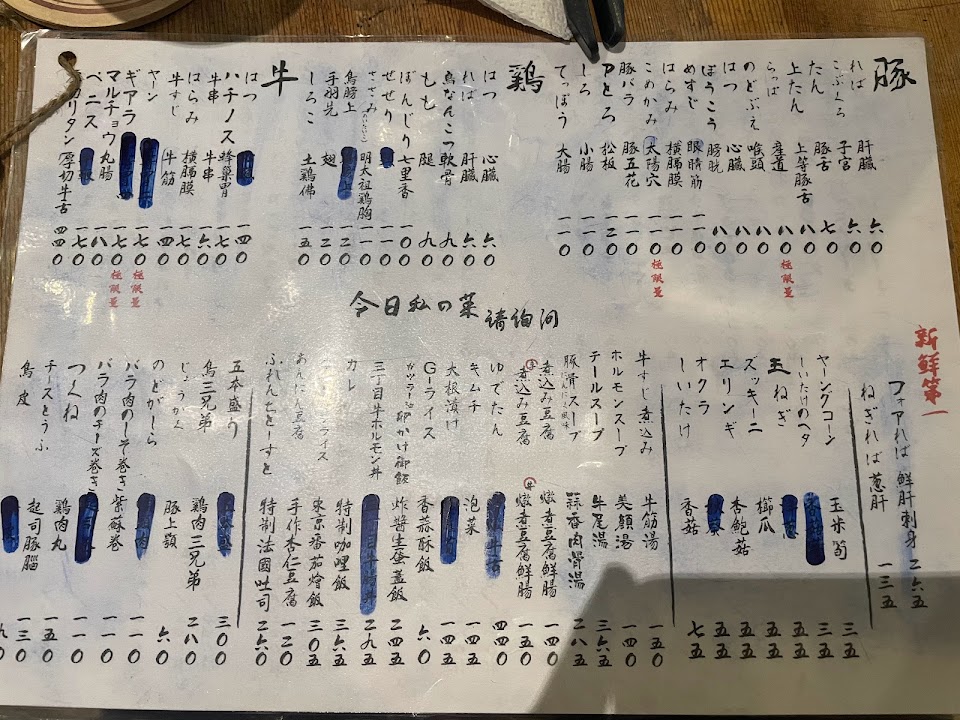 豚
れば 肝臓 六〇
こぶくろ 子宮 六〇
たん 豚舌 七〇
上たん 上等豚舌 八〇
らっぱ 産道 八〇 極限量
のどぶえ 喉頭 八〇
はつ 心臓 八〇
ぼうこう 膀胱 八〇
めすじ 眼睛筋
はらみ 横膈膜 一一〇
こめかみ 太陽穴 一一〇 極限量
豚バラ 豚五花 一一〇
Pとろ 松板 一二〇
しろ 小腸 一一〇
てっぽう 大腸 一一〇
鶏
はつ 心臓 六〇
れば 肝臓 六〇
鳥なんこつ 軟骨 九〇
もも 腿 九〇
ぼんじり 七里香
せせり 一一〇
ささみ 明太祖鶏胸 一一〇
鳥膀上 一二〇
手羽先 翅 一二〇
しろこ 土鶏佛 一五〇
牛
はつ 一四〇
ハチノス 蜂巣胃
牛串 牛串
はらみ 横膈膜 一七〇
牛すじ 牛筋 一四〇
ヤーン 一七〇 極限量
ギアラ 一七〇 極限量
マルチョウ 丸腸
ペニス
タン 厚切牛舌 四四〇
今日私の菜 請詢问
新鮮第一
フォアれば 鮮肝刺身 二六五
ねぎれば 葱肝 一三五
ヤーングコーン 玉米筍 三五
しいたけのヘタ 三五
玉ねぎ 五五
ズッキーニ 櫛瓜 五五
エリンギ 杏鮑菇 五五
オクラ 五五
しいたけ 香菇 七五
牛すじ煮込み 牛筋湯 一五〇
ホルモンスープ 美顔湯 一四〇
テールスープ 牛尾湯 三六五
豚骨スープ 蒜香肉骨湯 二八五
煮込み豆腐 燉煮豆腐鮮腸 一四〇
煮込み豆腐 燉煮豆腐鮮腸 一四〇
ゆでたん 四〇
キムチ 泡菜 一四五
大根漬け 一四五
Gーライス 香蒜酥飯 六〇
卵かけ御飯 炸醬生蛋蓋飯 二四五
三丁目牛ホルモン丼 二九五
カレー 特制咖哩飯 三六五
ライス 東京番茄燴飯 三〇五
あんにん豆腐 手作杏仁豆腐 一二〇
ふれんちとーすと 特制法國吐司 二六〇
五本盛り 三〇〇
鳥三兄弟 鶏肉三兄弟 二八〇
じょうがく 豚上顎 六〇
のどがしら 一一〇
バラ肉のしそ巻き 紫蘇巻 一一〇
バラ肉のチーズ巻き 一一〇
つくね 鶏肉丸 一五〇
チーズとうふ 起司豚腦 一三〇
鳥皮 九〇